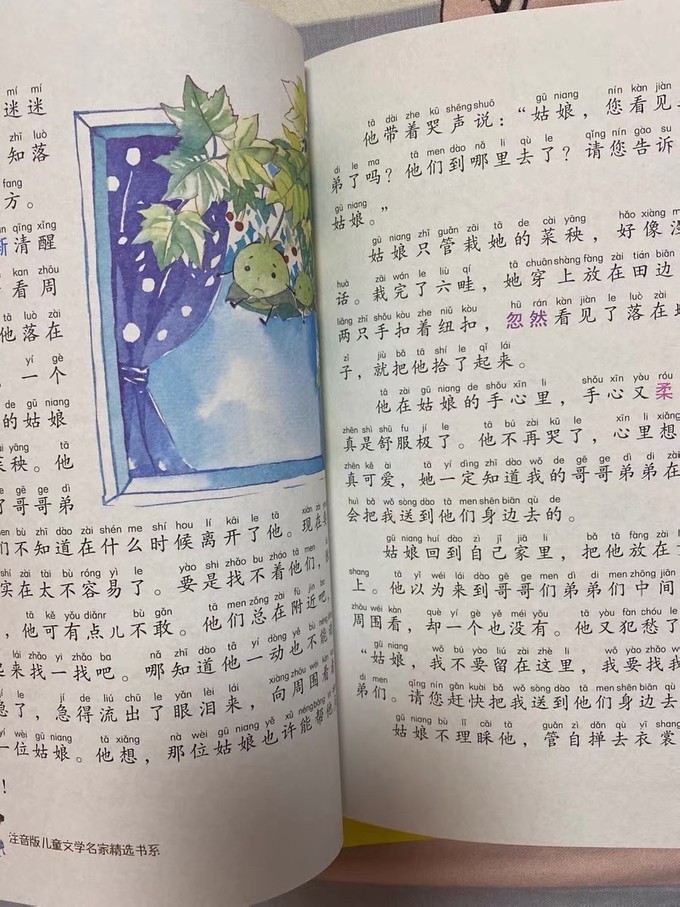 mí mí
迷迷
zhī luò
知落
fang
方。
qīng xǐng
渐清醒
kan zhōu
看周
他落在
yí gè
，一个
de gū niang
的姑娘
ài yāng tā
菜秧。他
le gē ge dì di
了哥哥弟
men bù zhī dào zài shén me shí hou lí kāi le tā xiàn zài
们不知道在什么时候离开了他。现在
shí zài tài bù róng yì le yào shi zhǎo bu zháo tā men
实在太不容易了。要是找不着他们，
tā kě yǒu diǎnr bù gǎn tā men zǒng zài fù jìn ba
，他可有点儿不敢。他们总在附近吧，
lái zhǎo yi zhǎo ba nǎ zhī dào tā yí dòng yě bù néng
起来找一找吧。哪知道他一动也不能
le jí de liú chū le yǎn lèi lái xiàng zhōu wéi kàn
急了，急得流出了眼泪来，向周围看
yí wèi gū niang tā xiǎng nà wèi gū niang yě xǔ néng bāng
一位姑娘。他想，那位姑娘也许能帮他
！
注音版儿童文学名家精选书系
tā dài zhe kū shēng shuō gū niang nín kàn jiàn
他带着哭声说：“姑娘，您看见
di le ma tā men dào nǎ li qù le qǐng nín gào su
弟了吗？他们到哪里去了？请您告诉
gū niang
姑娘。”
gū niang zhǐ guǎn zāi tā de cài yāng hǎo xiàng
姑娘只管栽她的菜秧，好像没
huà zāi wán le liù qí tā chuān shàng fàng zài tián biān
话。栽完了六畦，她穿上放在田边
liǎng zhī shǒu kòu zhe niǔ kòu hū rán kàn jiàn le luò zài
两只手扣着纽扣，忽然看见了落在
zǐ jiù bǎ tā shí le qǐ lai
子，就把他拾了起来。
tā zài gū niang de shǒu xīn li shǒu xīn yòu róu
他在姑娘的手心里，手心又柔
zhēn shì shū fu jí le tā bú zài kū le xīn li xiǎng
真是舒服极了。他不再哭了，心里想
zhēn kě ài tā yí dìng zhī dào wǒ de gē ge dì di zài
真可爱，她一定知道我的哥哥弟弟在
huì bǎ wǒ sòng dào tā men shēn biān qù de
会把我送到他们身边去的。
gū niang huí dào zì jǐ jiā li bǎ tā fàng zài
姑娘回到自己家里，把他放在
shang tā yǐ wéi lái dào gē ge men dì di men zhōng jiān
上。他以为来到哥哥们弟弟们中间
zhōu wéi kàn què yí gè yě méi yǒu tā yòu fàn chóu le
周围看，却一个也没有。他又犯愁了
gū niang wǒ bú yào liú zài zhè li wǒ yào zhǎo wǒ
“姑娘，我不要留在这里，我要找我
di men qǐng nín gǎn kuài bǎ wǒ sòng dào tā men shēn biān qù
弟们。请您赶快把我送到他们身边去
gū niang bù lǐ cǎi tā guǎn zì dǎn qù yī shang
姑娘不理睬他，管自掸去衣裳